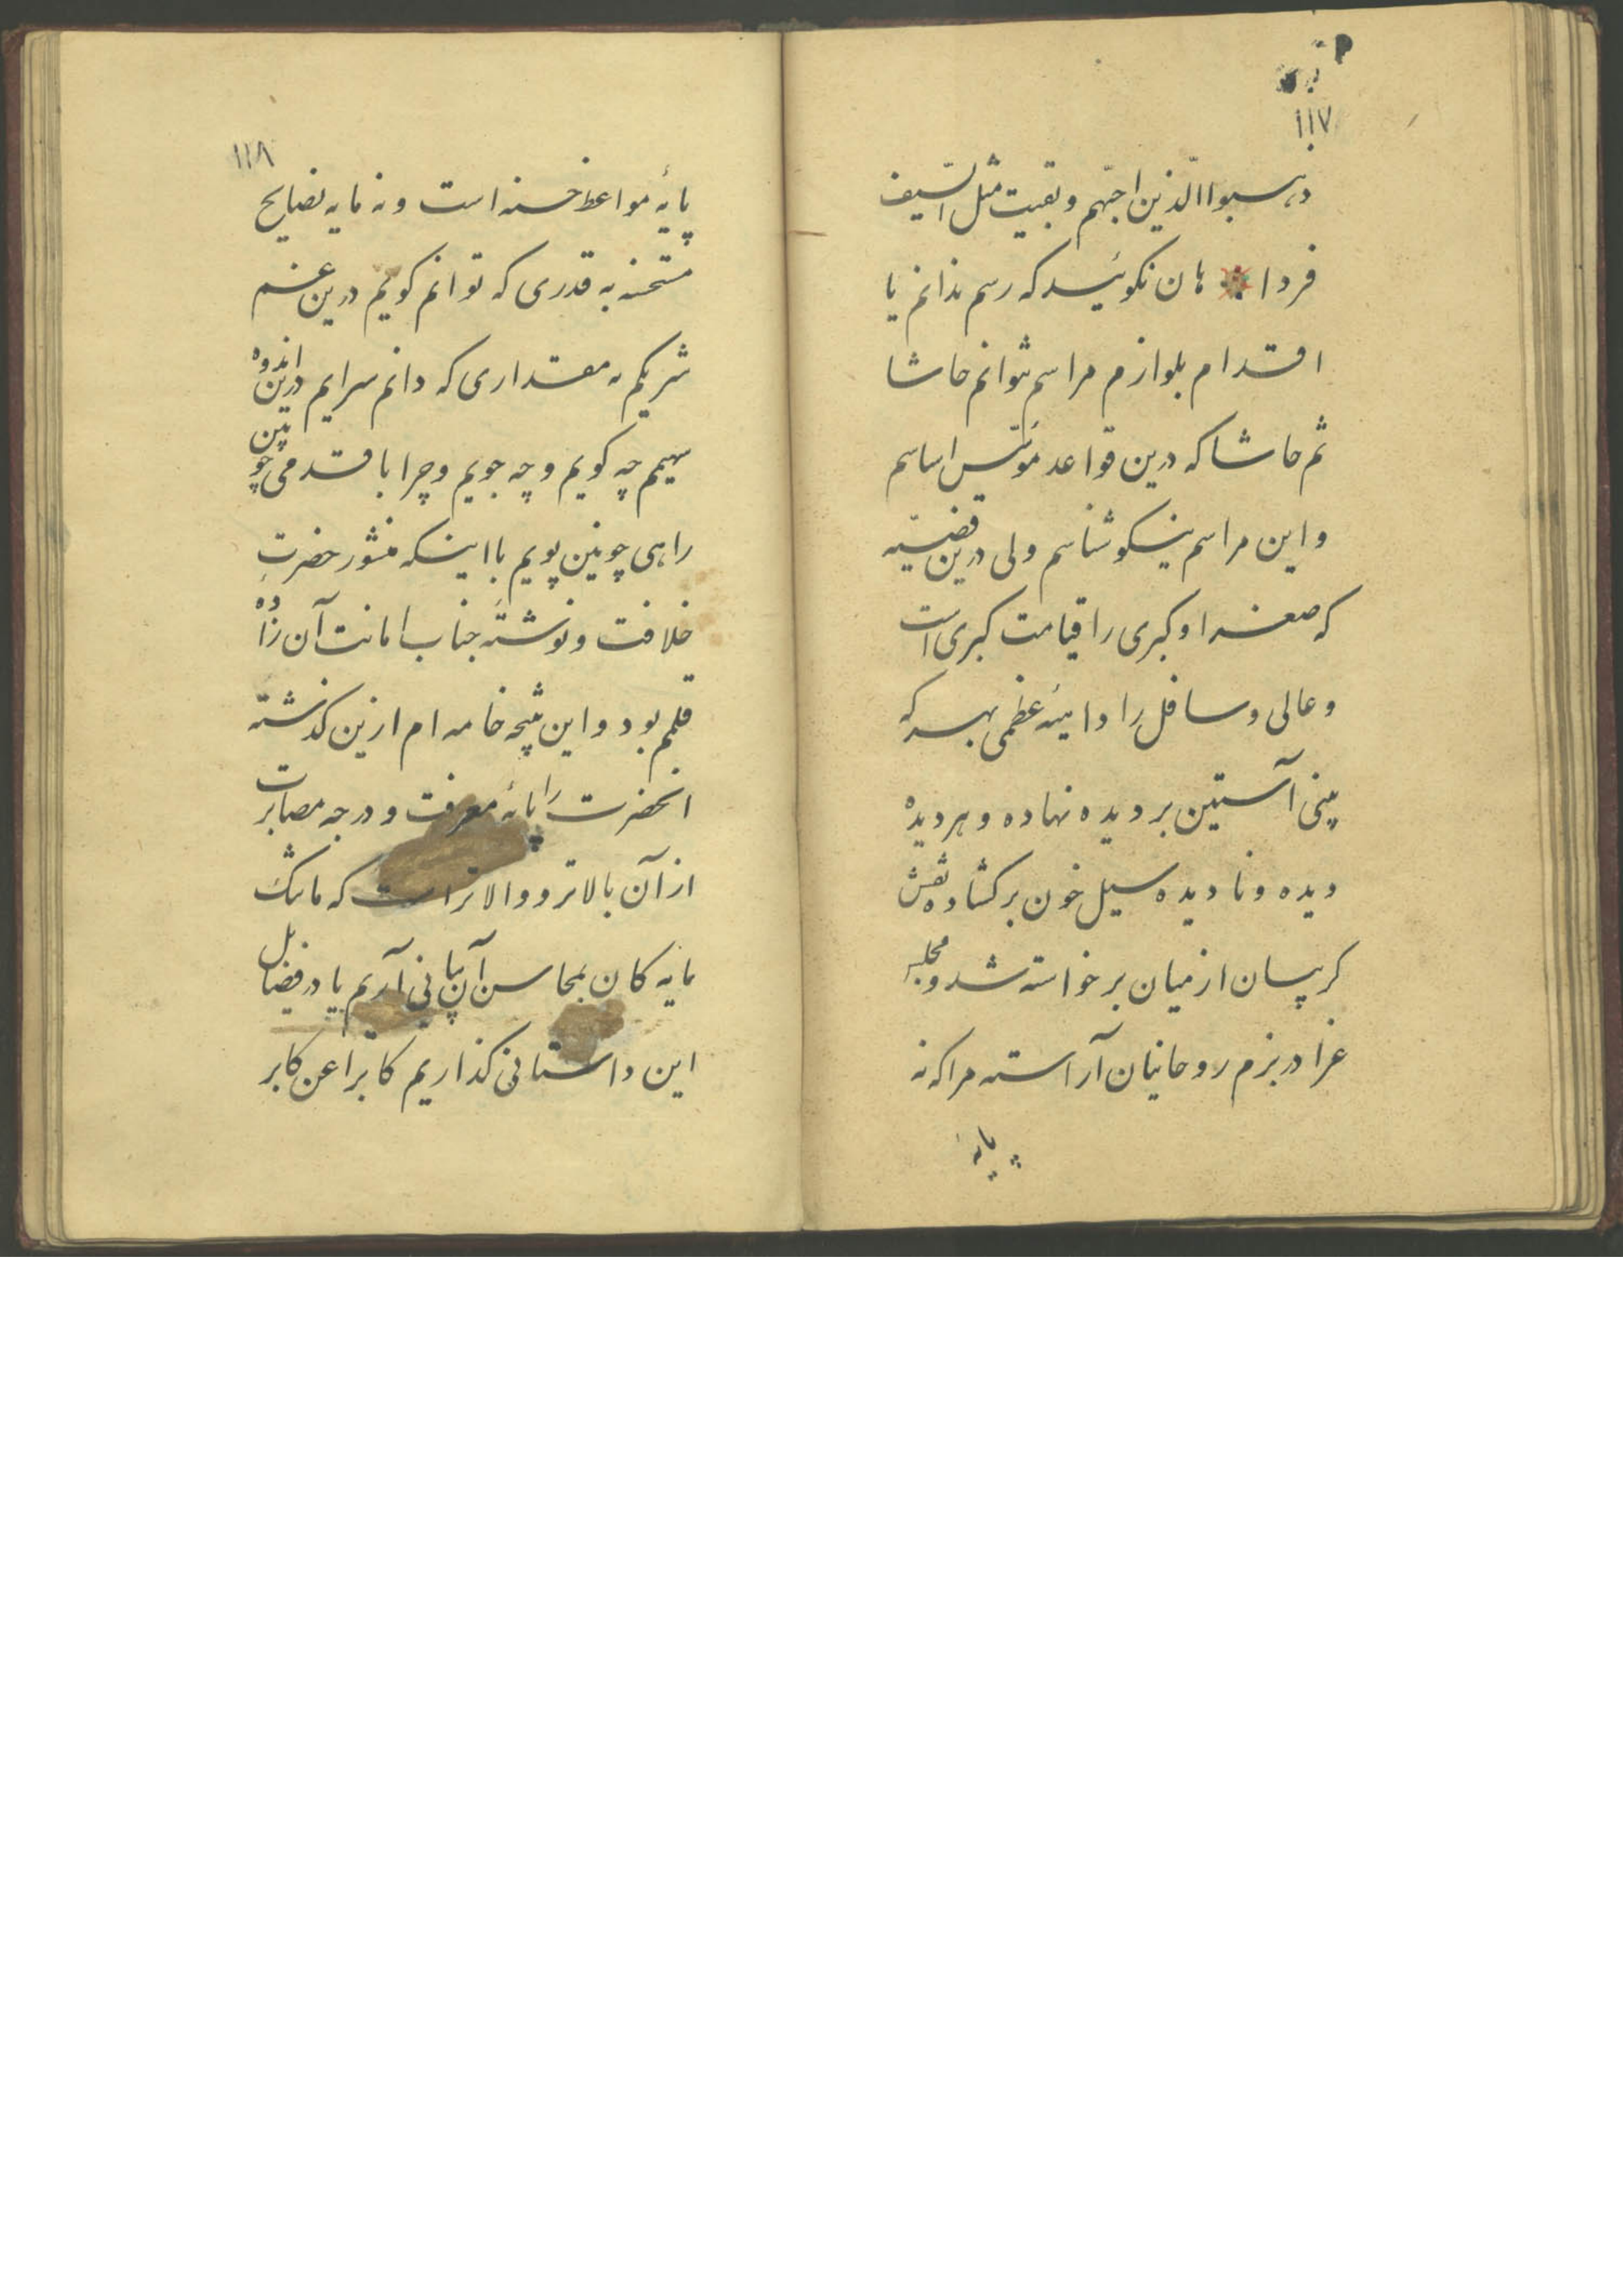 ۱۱۷
ذهب الّذین احبّهم و بقیت مثل السّیف
فردا هان نکوئید که رسم ندانم یا
اقدام بلوازم مراسم نتوانم حاشا
ثم حاشا که درین قواعد مؤسّس اساسم
و این مراسم نیکو شناسم ولی درین قضیّه
که صغرا و کبری را قیامت کبری است
و عالی و سافل را داهیهٔ عظمی بهر که
بینی آستین بر دیده نهاده و هر دیده
دیده و نادیده سیل خون برکشاده نقش
کریبان از میان برخواسته شد و مجلس
عزا در بزم روحانیان آراسته مرا که نه
پایهٔ
۱۱۸
پایهٔ مواعظ حسنه است و نه مایه نصایح
مستحسنه به قدری که توانم کویم درین غم
شریکم به مقداری که دانم سرایم درین اندوه
سهیم چه کویم و چه جویم و چرا با قدمی چوبین
راهی چونین پویم با اینکه منشور حضرت
خلافت و نوشتهٔ جناب امانت آن زاده
قلمم بود و این نتیجه خامه ام ازین کذشته
انحضرت را پایهٔ معرفت و درجه مصابرت
از آن بالاتر و والاتر است که ما تنک
مایه کان بمحاسن آن بیانی آریم یا در فضایل
این داستانی کذاریم کابرا عن کابر